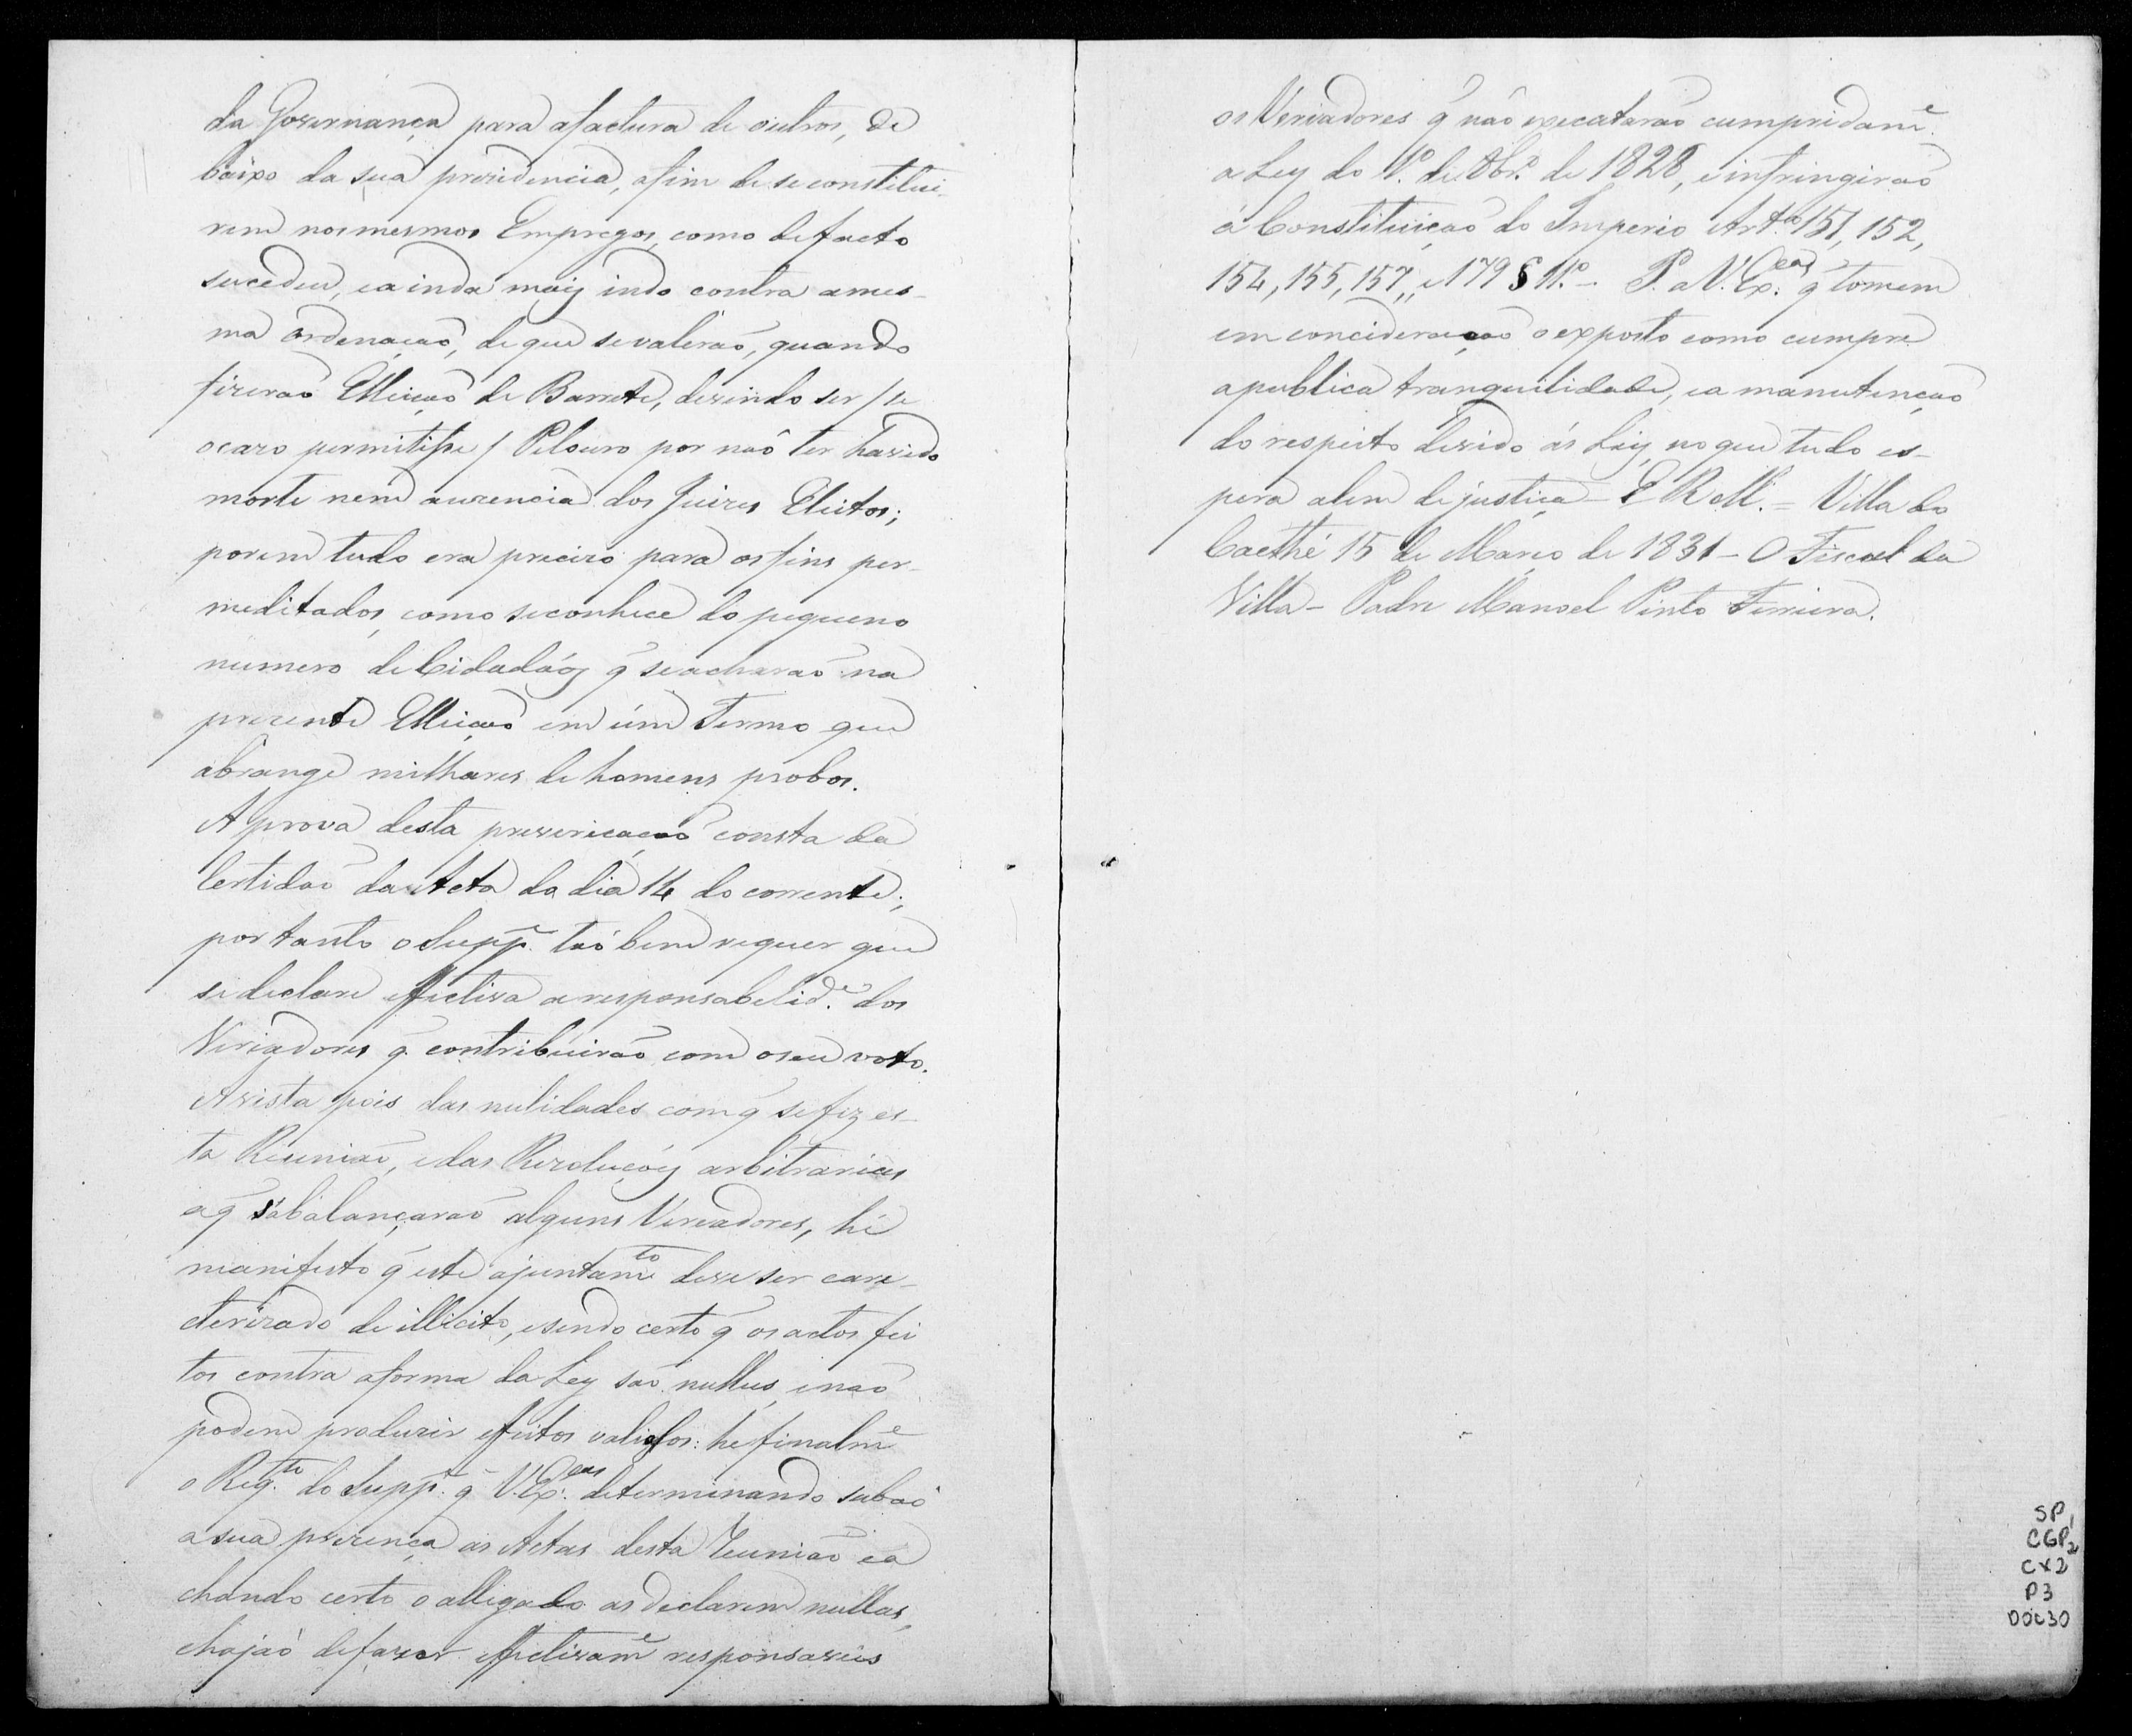 da Governança para afactura de outros, de
baixo da sua prezidencia, afim de se constitui-
rem nos mesmos Empregos, como de facto
sucedeu, e ainda maiz indo contra ames-
ma ordenação, de que se valerão, quando
fizerao Elleicaõ de Barrete, dezindo ser / se
o cazo permitisse / Pelouro por naõ ter havido
morte nem auzencia dos Juizes Eleitos;
porem tudo era precizo para os fins per-
meditados, como se conhece do pequeno
numero de Cidadáoz q̃ se acharaõ na
prezente Elleicaõ em úm Termo que
abrange milhares de homens probos.
A prova desta prevericaçaõ consta da
Certidaõ da Acta do dia 14 do corrente;
por tanto o Supp.e taõ bem requer que
se declare effectiva a responsabelid.e dos
Veriadores q̃ contribuiraõ com o seu voto.
A vista pois das nulidades com q̃ se fez es-
ta Reuniaõ, e das Rezoluçóez arbitrarias
a q̃ s'abalançaraõ alguns Vereadores, hé
manifesto q̃ este ajuntam.to deve ser cara-
cterizado de illicito, e sendo certo q̃ os actos fei
tos contra aforma da Ley saõ nullus, e naõ
podem produzir effeitos validos: he finalm.e
o Reg.to do Supp.e q̃ V. Ex.cas determinando subaõ
a sua prezença as Actas desta Reuniaõ e a
chando certo o allegado as declarem nullas,
e hajaõ de fazer effectivam.e responsaveis
os Veriadores q̃ naõ execataraõ cumpridam.e
a Ley do 1.º de 8br.º de 1828, e infringiraõ
a Constituiçaõ do Imperio Art.os 151, 152,
154, 155, 157,, e 179 § 11.º - P. a V. Ex.cas q̃ tomem
em concideraçaõ o exposto como cumpre
a publica tranquilidade, e a manutençaõ
do respeito devido ás Leiz, no que tudo es-
pera alem de justiça - E R M. = Villa do
Caethé 15 de Março de 1831 - O Fiscal da
Villa - Padre Manoel Pinto Ferreira.
SP
CGP 1/2
CX2
P3
DOC30